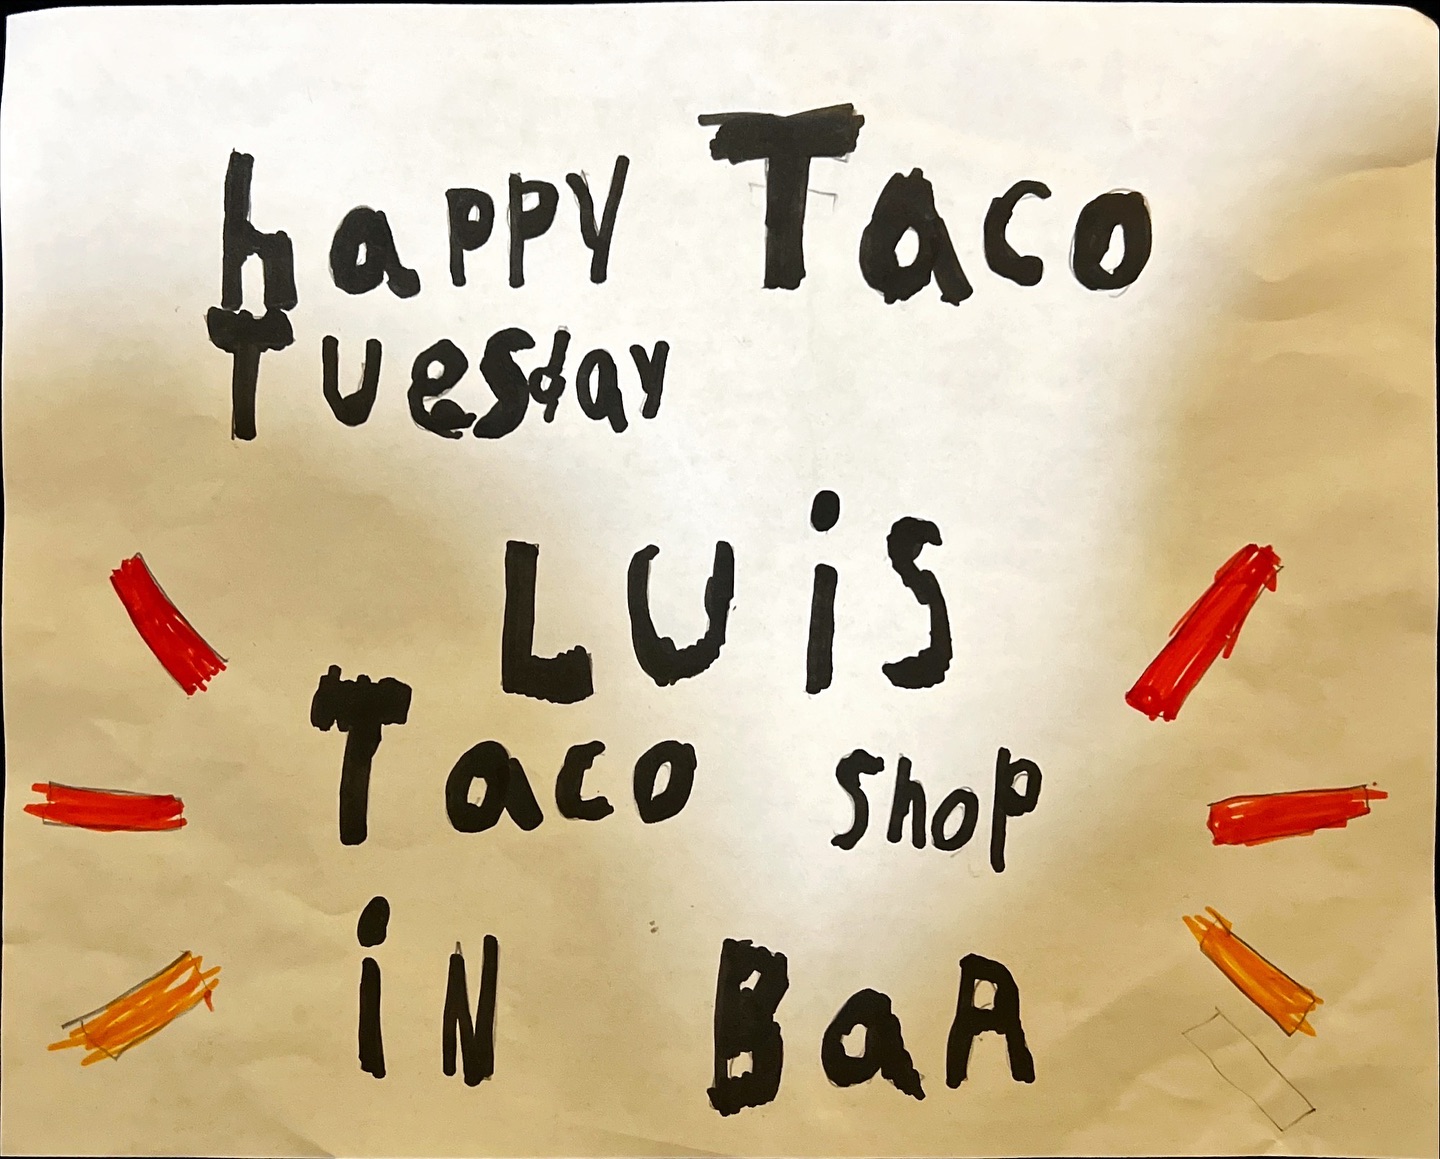 happy Taco
Tuesday
LUiS
Taco shop
iN BaR